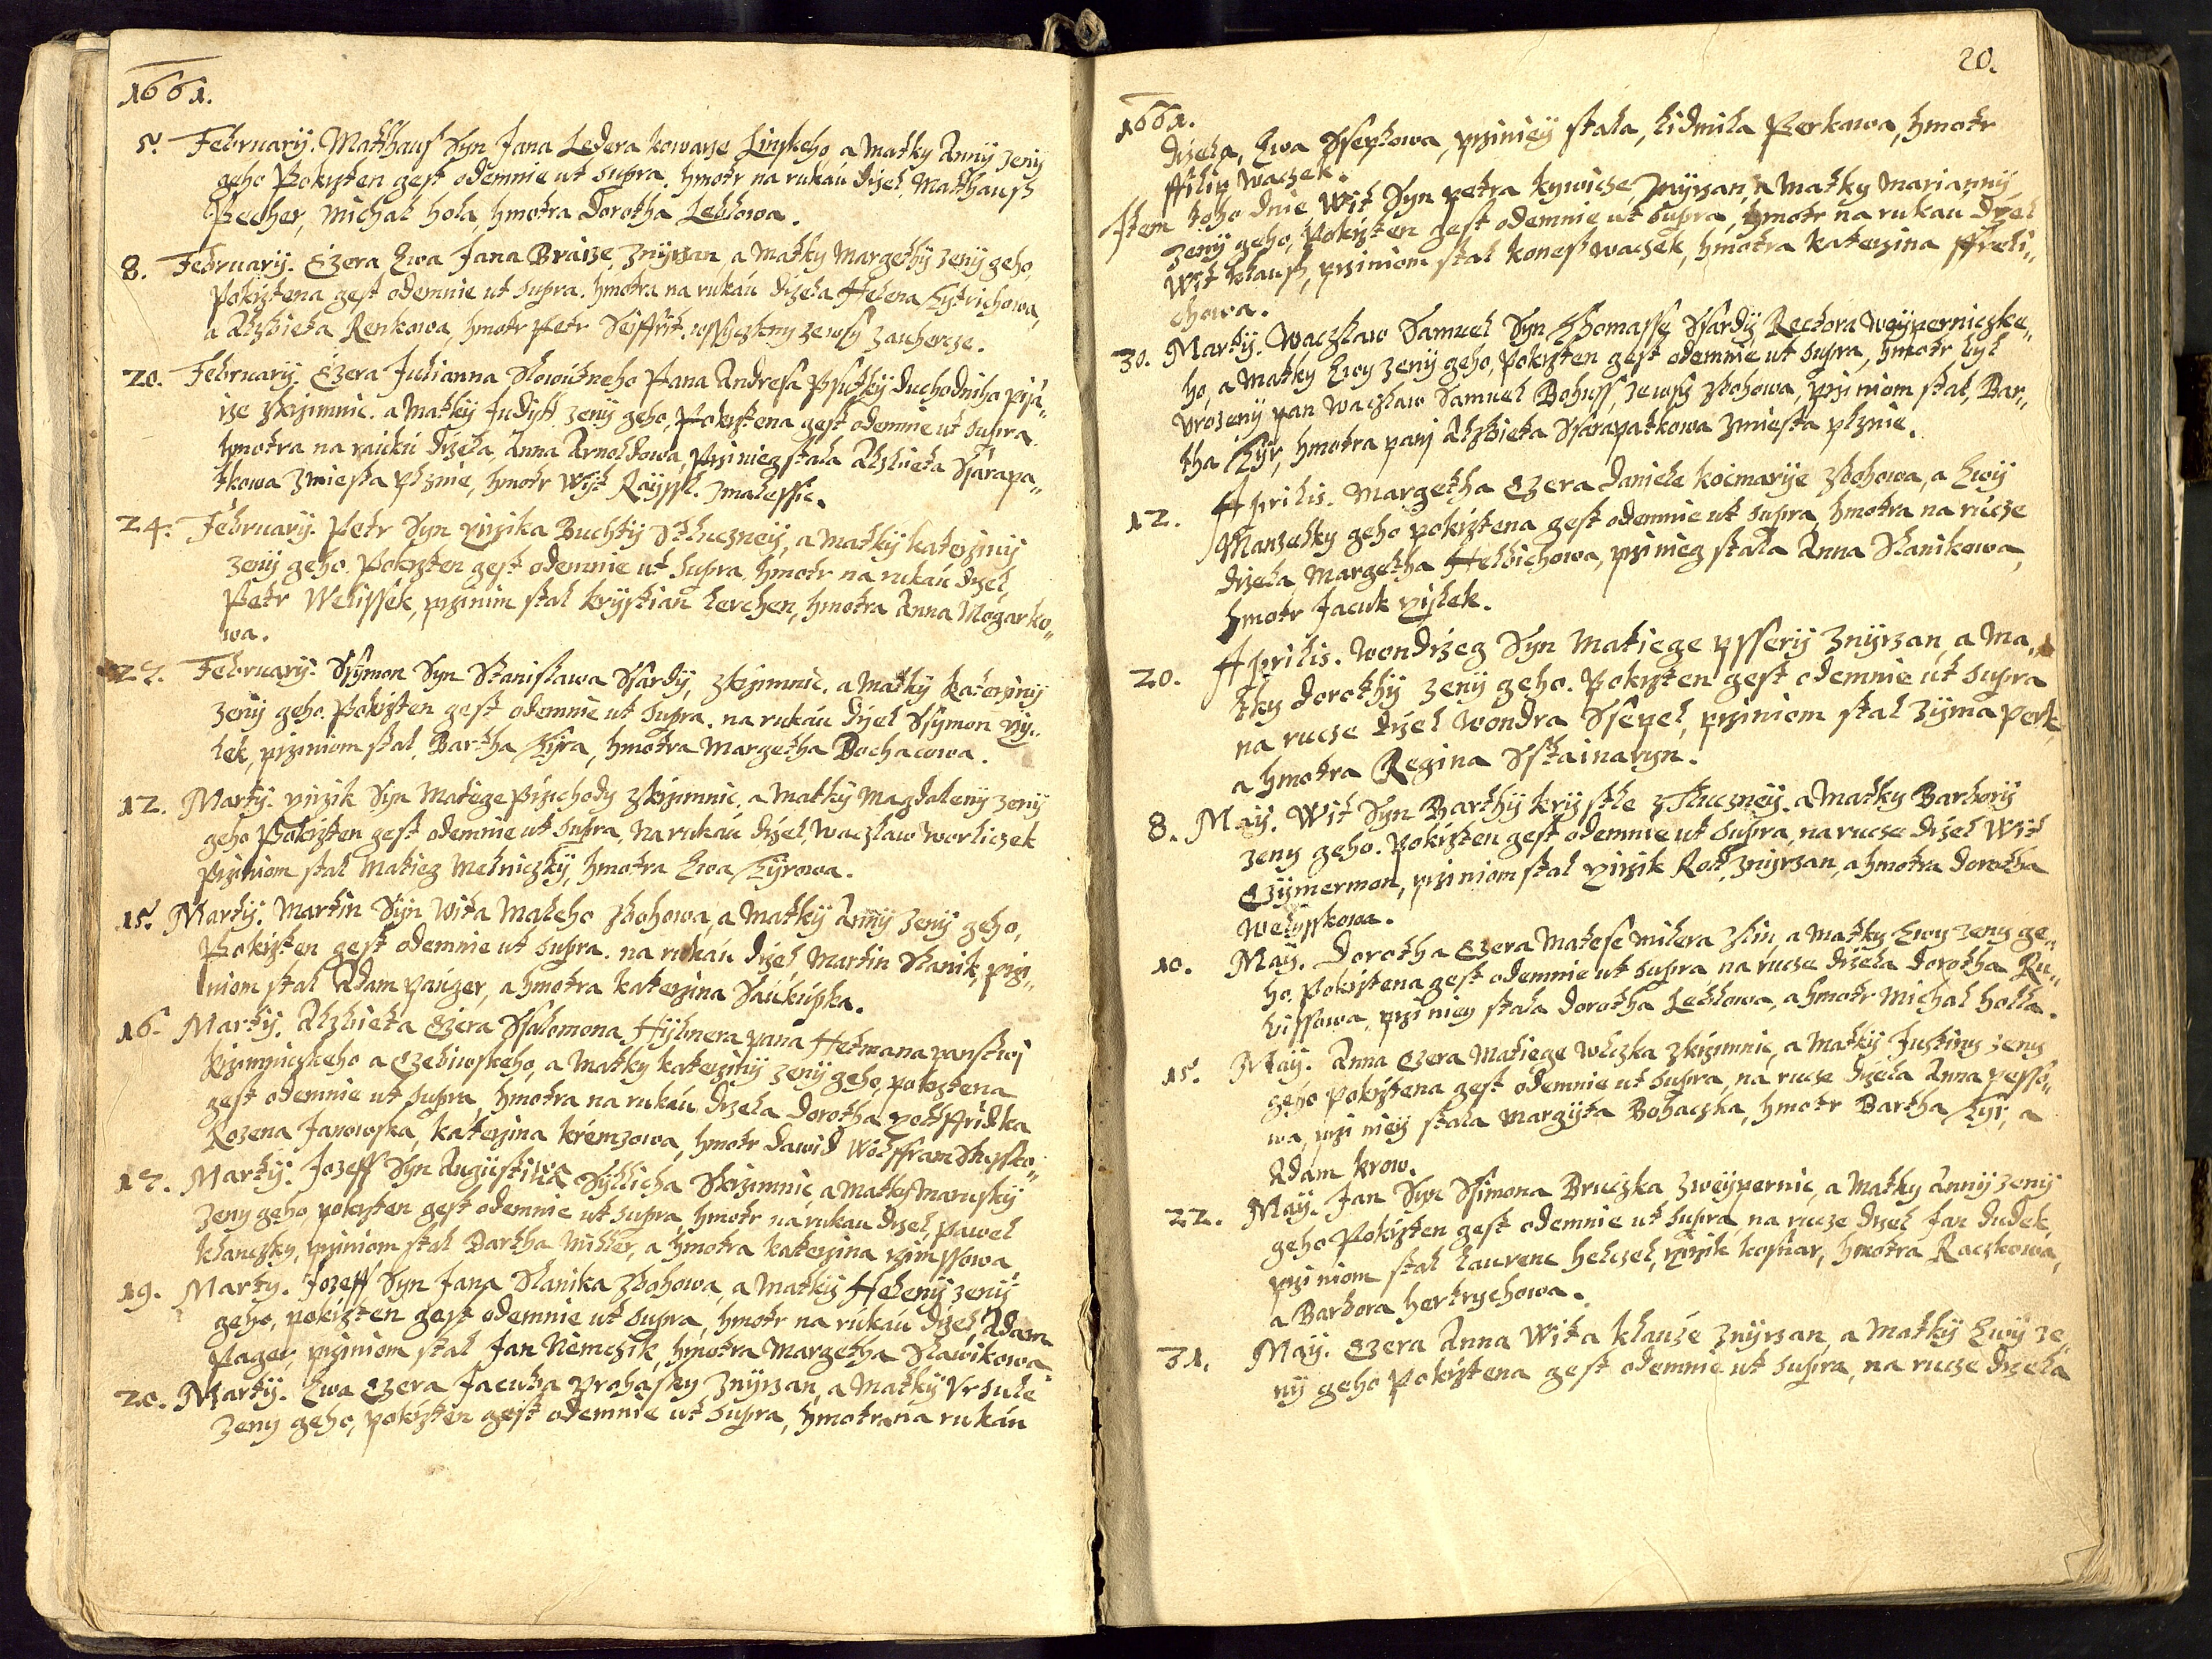 1661.
5. February. Matthaus Syn Jana Ledera kowarze Linskeho, a Matky Anny zeny
geho Pokrzten gest odemnie ut supra. hmotr na rukau drzel Matthaus
Pecher, Michal hola, hmotra Dorotha Leblowa.
8. February. Czera Ewa Jana Brause, znyrzan, a Matky Margethy zeny geho,
Pokrztena gest odemnie ut supra. hmotra na rukau drzela Helena
a Alzbieta Renkowa, hmotr Petr Seyffrit. wssyczkny zewsy zauhercze.
20. February. Czera Julianna Slowutneho Pana Andresa duchodniho pisa„
rze zkrzimnic. a Matky Judyth zeny geho, Pokrztena gest odemnie ut supra.
hmotra na rauckú drzela, Anna Arnoldowa, Prziniey stala Alzbieta Ssarapa„
tkowa Zmiesta plznie, hmotr Wyt Rayssl. zmalessic.
24. February. Petr Syn Buchty Stluczney, a Matky katerziny
zeny geho. Pokrzten gest odemnie ut supra, hmotr na rukau drzel,
Petr Welissek, przinim stal krystian Lerchen, hmotra Anna Mogarko„
wa.
27. February. Ssymon Syn Stanislawa Ssardy, zkrzimnic. a Matky Katerziny
zeny geho Pokrzten gest odemnie ut supra. na rukau drzel Ssymon
lek, prziniom stal, Bartha Kyra, hmotra Margetha Bochacowa.
12. Marty. Syn Matege Przichody zkrzimnic. a Matky Magdaleny zeny
geho Pokrzten gest odemnie ut supra, na rukau drzel, Waczlaw Worliczek
Prziniom stal Matieg Melniczky, hmotra Ewa Kyrowa.
15. Marty. Martin Syn Wita Maleho zbohowa, a Matky Anny zeny geho,
Pokrzten gest odemnie ut supra. na rukau drzel Martin Slanik, przi„
niom stal Adam pauger, a hmotra katerzina Saukupka.
16. Marty. Alzbieta Czera Ssalomona Hybnera pana Hetmana panstwi
krzimiczkeho a Czebiwskeho, a Matky katerziny zeny geho, pokrztena
gest odemnie ut supra, hmotra na rukau drzela Dorotha gottffridka
Rozena Janowska, katerzina kremzowa, hmotr Dawid Wolffram
17. Marty. Jozeff Syn Augustina Syllicha Skrzimnic, a Matky Marusky
zeny geho, pokrzten gest odemnie ut supra, hmotr na rukau drzel, pawel
klanczky, prziniom stal Bartha Miller, a hmotra katerzina
19. Marty. Jozeff Syn Jana Slanika zbohowa, a Matky Heleny zeny
geho, pokrzten gest odemnie ut supra, hmotr na rukau drzel, Adam
Pager, prziniom stal Jan Niemczik, hmotra Margetha Slawikowa
20. Marty. Ewa Czera Jacuba prohasky znyrzan, a Matky Ursule
zeny geho, pokrzten gest odemnie ut supra, hmotra na rukau
20.
1661.
drzela, Ewa Ssepkowa, prziniey stala, Lidmila Perkowa, hmotr
ffilip Waczek.
Item toho dnie Wit Syn petra kywicze, znyrzan, a Matky Marianny
zeny geho, Pokrzten gest odemnie ut supra, hmotr na rukau drzel
Wit klaus, prziniom stal kones waczek, hmotra katerzina ffreli„
chowa.
30. Marty. Waczlaw Samuel Syn Thomasse Ssardy, Rechora Weyperniczke„
ho, a Matky Ewy zeny geho, Pokrzten gest odemnie ut supra, hmotr byl
urozeny pan Waczlaw Samuel Bohuss, zewsy zbohowa, prziniom stal, Bar„
tha Kyr, hmotra pani Alzbieta Ssarapatkowa zmiesta plznie.
12. Aprilis. Margetha Czera Daniele kocmarye zbohowa, a Ewy
Manzelky geho pokrztena gest odemnie ut supra, hmotra na rucze
drzela Margetha Helbichowa, prziniey stala Anna Slanikowa,
hmotr Jacub
20. Aprilis. Wondrzeg Syn Matiege znyrzan, a Ma„
tky dorothy zeny geho. Pokrzten gest odemnie ut supra
na rucze drzel Wondra Ssepel, prziniom stal zyma perk,
a hmotra Regina Sstainaryn.
8. May. Wit Syn Barthy krystle zStluczney. a Matky Barbory
zeny geho. Pokrzten gest odemnie ut supra, na rucze drzel Wit
Czymermon, prziniom stal Rod, znyrzan, a hmotra dorotha
Welysskowa.
10. May. Dorotha Czera Matese milera zlin, a Matky Ewy zeny ge„
ho. Pokrztena gest odemnie ut supra na rucze drzela dorotha Ku„
bissowa, prziniey stala dorotha Leblowa, a hmotr Michal holla.
15. May. Anna Czera Matiege wlczka zkrzimnic, a Matky Justiny zeny
geho pokrztena gest odemnie ut supra, na rucze drzela Anna pesso„
wa, prziniey stala Margyta Bohaczka, hmotr Bartha Kyr, a
Adam krow.
22. May. Jan Syn Ssimona Bruczka zweypernic, a Matky Anny zeny
geho Pokrzten gest odemnie ut supra na rucze drzel Jan dudek,
prziniom stal Laurenc helczel, koblar, hmotra Raczkowa,
a Barbora hertrychowa.
31. May. Czera Anna Wita klause znyrzan, a Matky Ewy ze„
ny geho Pokrztena gest odemnie ut supra, na rucze drzela